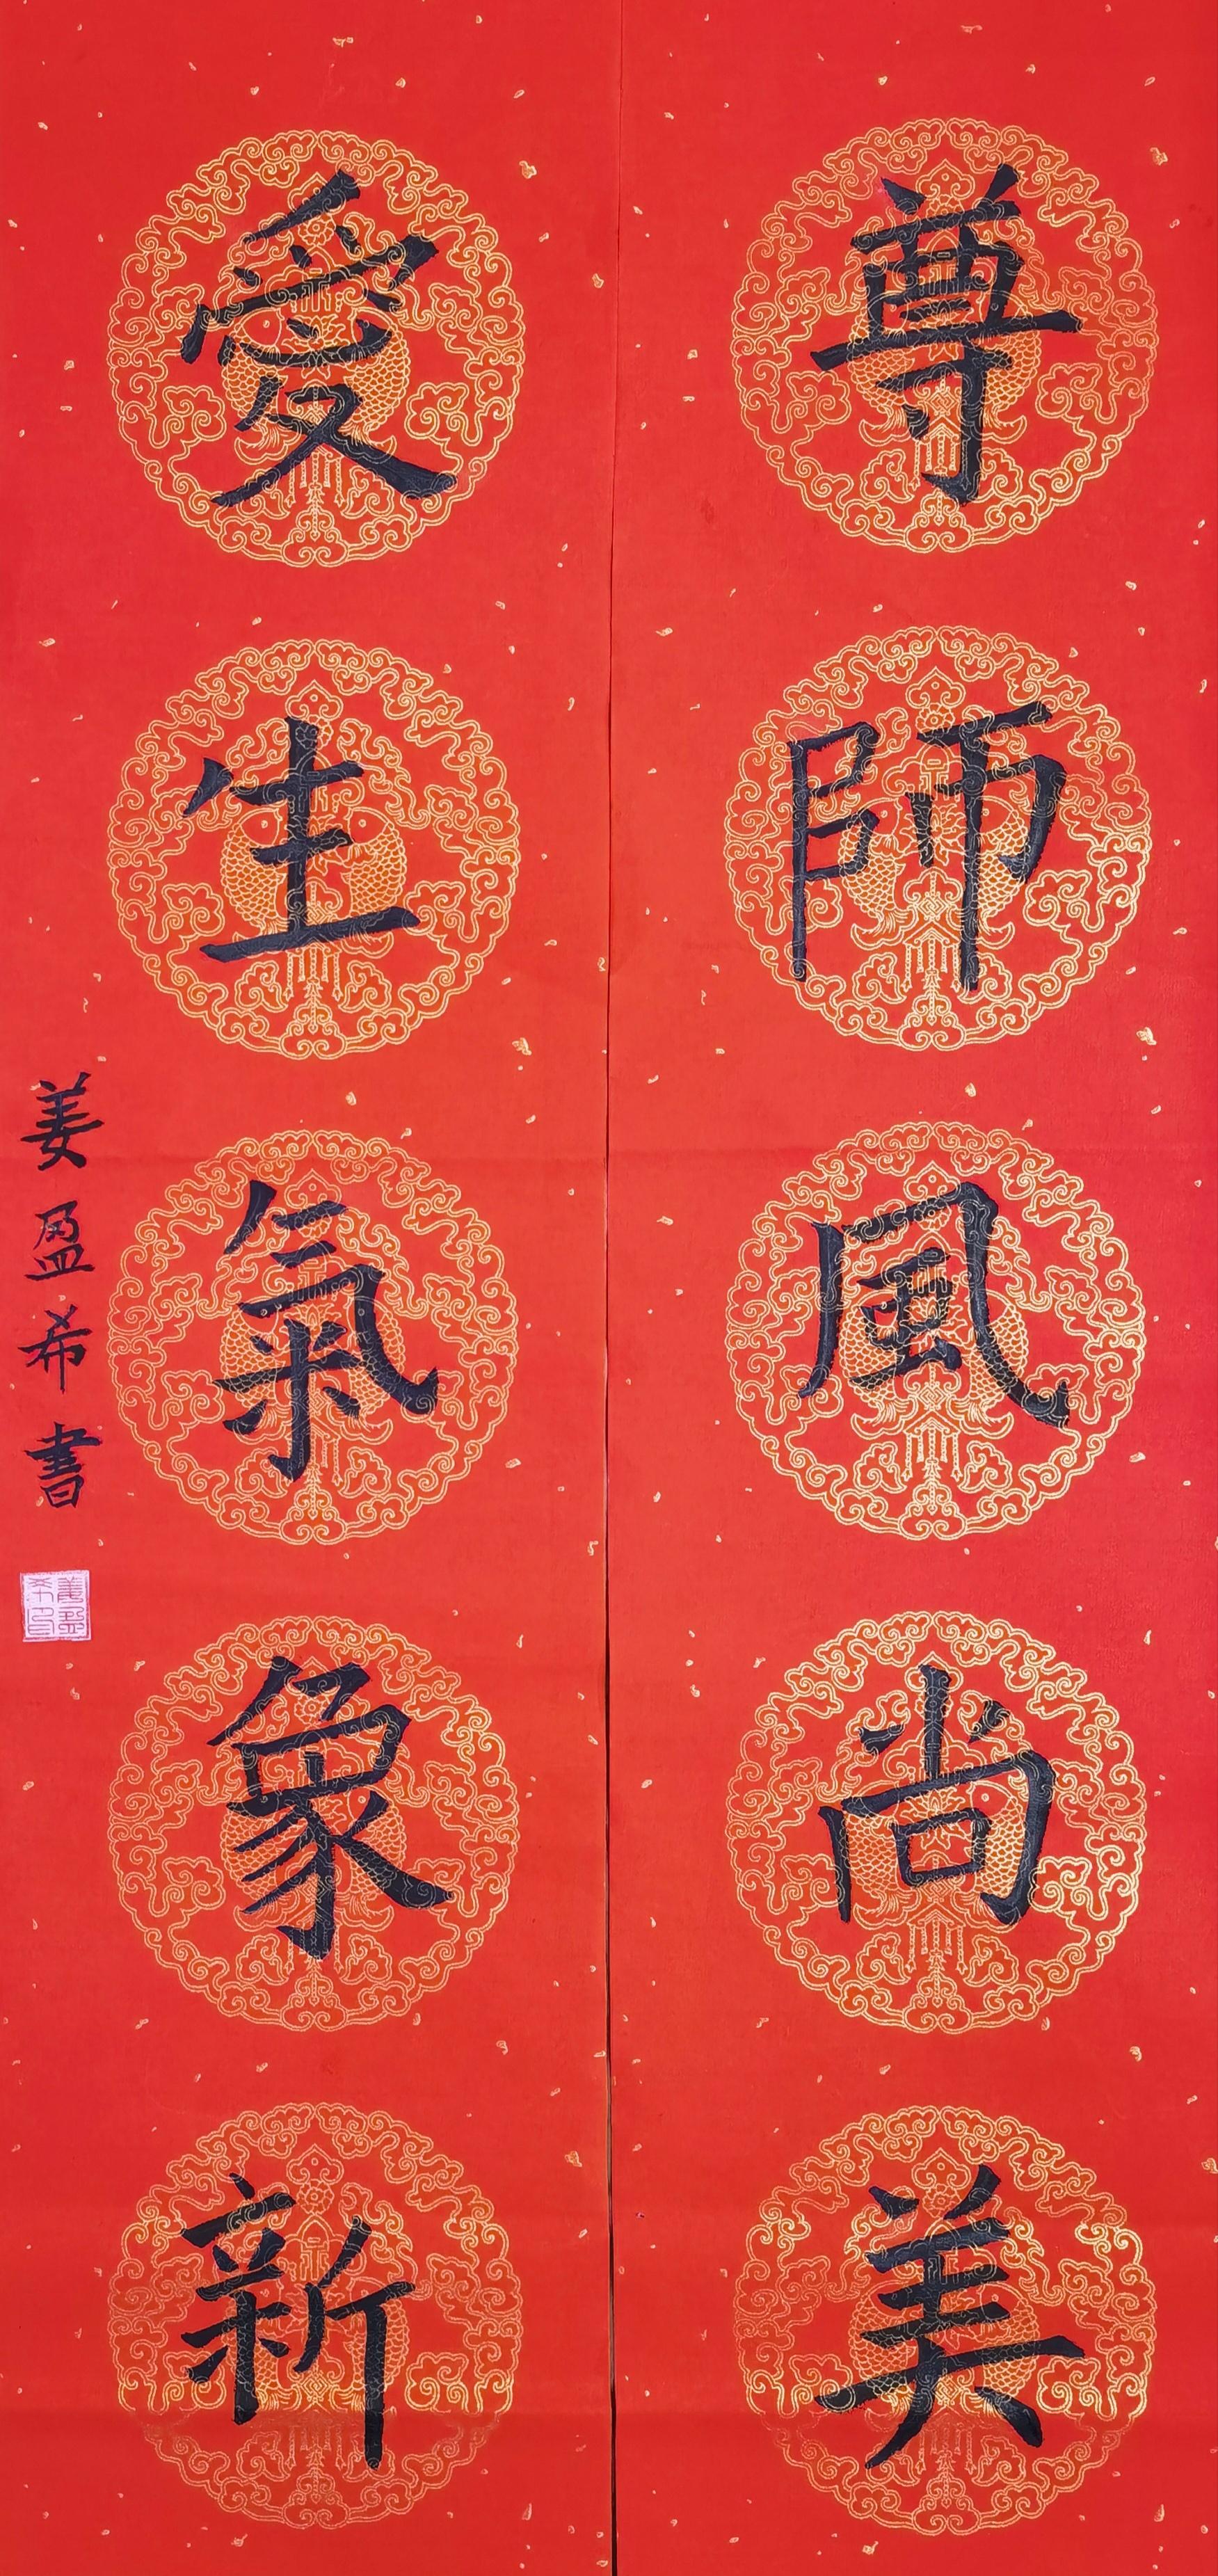 尊師風尚美
愛生氣象新
姜盈希書
姜盈希印